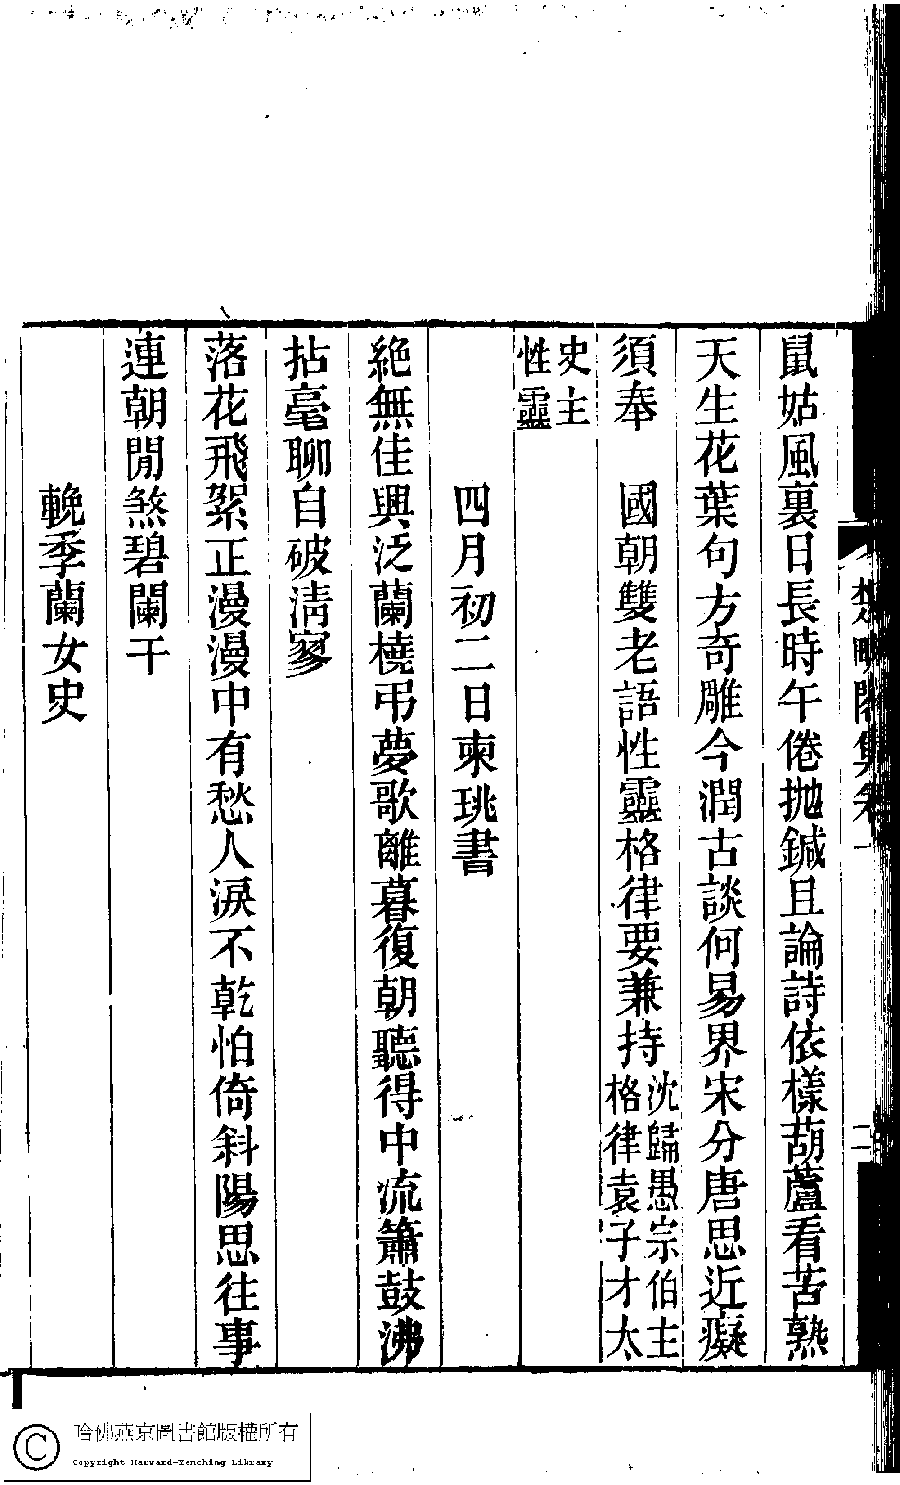 閣集卷一
二
鼠姑風裏日長時午倦拋鍼且論詩依樣葫蘆看苦熟
天生花葉句方奇雕今潤古談何易界宋分唐思近癡
須奉　國朝雙老語性靈格律要兼持沈歸愚宗伯主格律袁子才太
史主性靈
四月初二日柬珧書
絶無佳興泛蘭橈弔夢歌離暮復朝聽得中流簫鼓沸
拈毫聊自破淸寥
落花飛絮正漫漫中有愁人淚不乾怕倚斜陽思往事
連朝閒煞碧闌干
輓季蘭女史
哈佛燕京圖書館版權所有
Copyright Harvard-Yenching Library